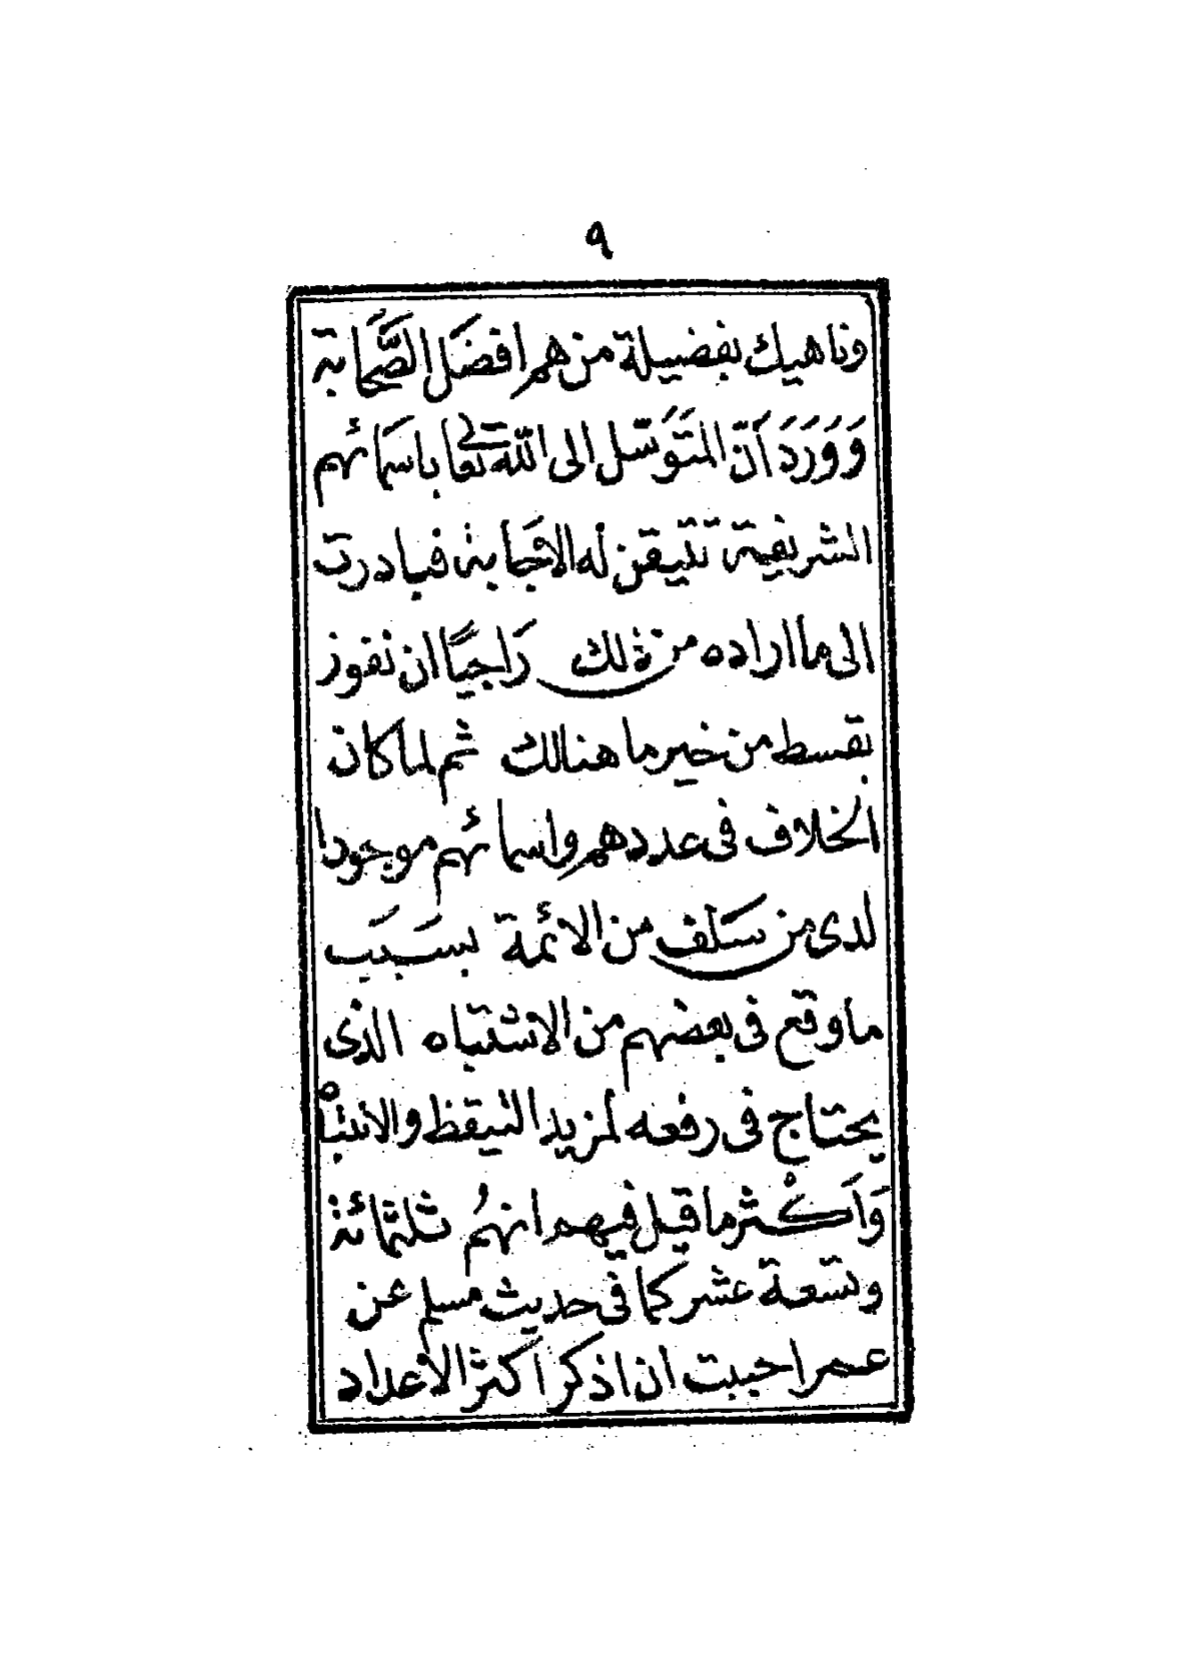 ٩
وناهيك بفضيلة من هم افضَل الصَّحَابة
وَوَرَدَ اَنّ المتَوَسّل الى اللّه تعالى باسمَائهم
الشريفة تتيقن له الاجَابة فبادرت
الى ما اراده من ذلك رَاجيًا ان نفوز
بقسط من خير ما هنالك ثم لما كان
الخلاف فى عددهم واسمائهم موجودا
لدى من سَلف من الائمة بسَبَب
ما وقع فى بعضهم من الاشتباه الذى
يحتاج فى رفعه لمزيد التيقظ والانتباه
وَاَكْثر ما قيل فيهم انهُم ثلثمائة
وتسعة عشر كما فى حديث مسلم عن
عمر احببت ان اذكر اكثر الاعداد